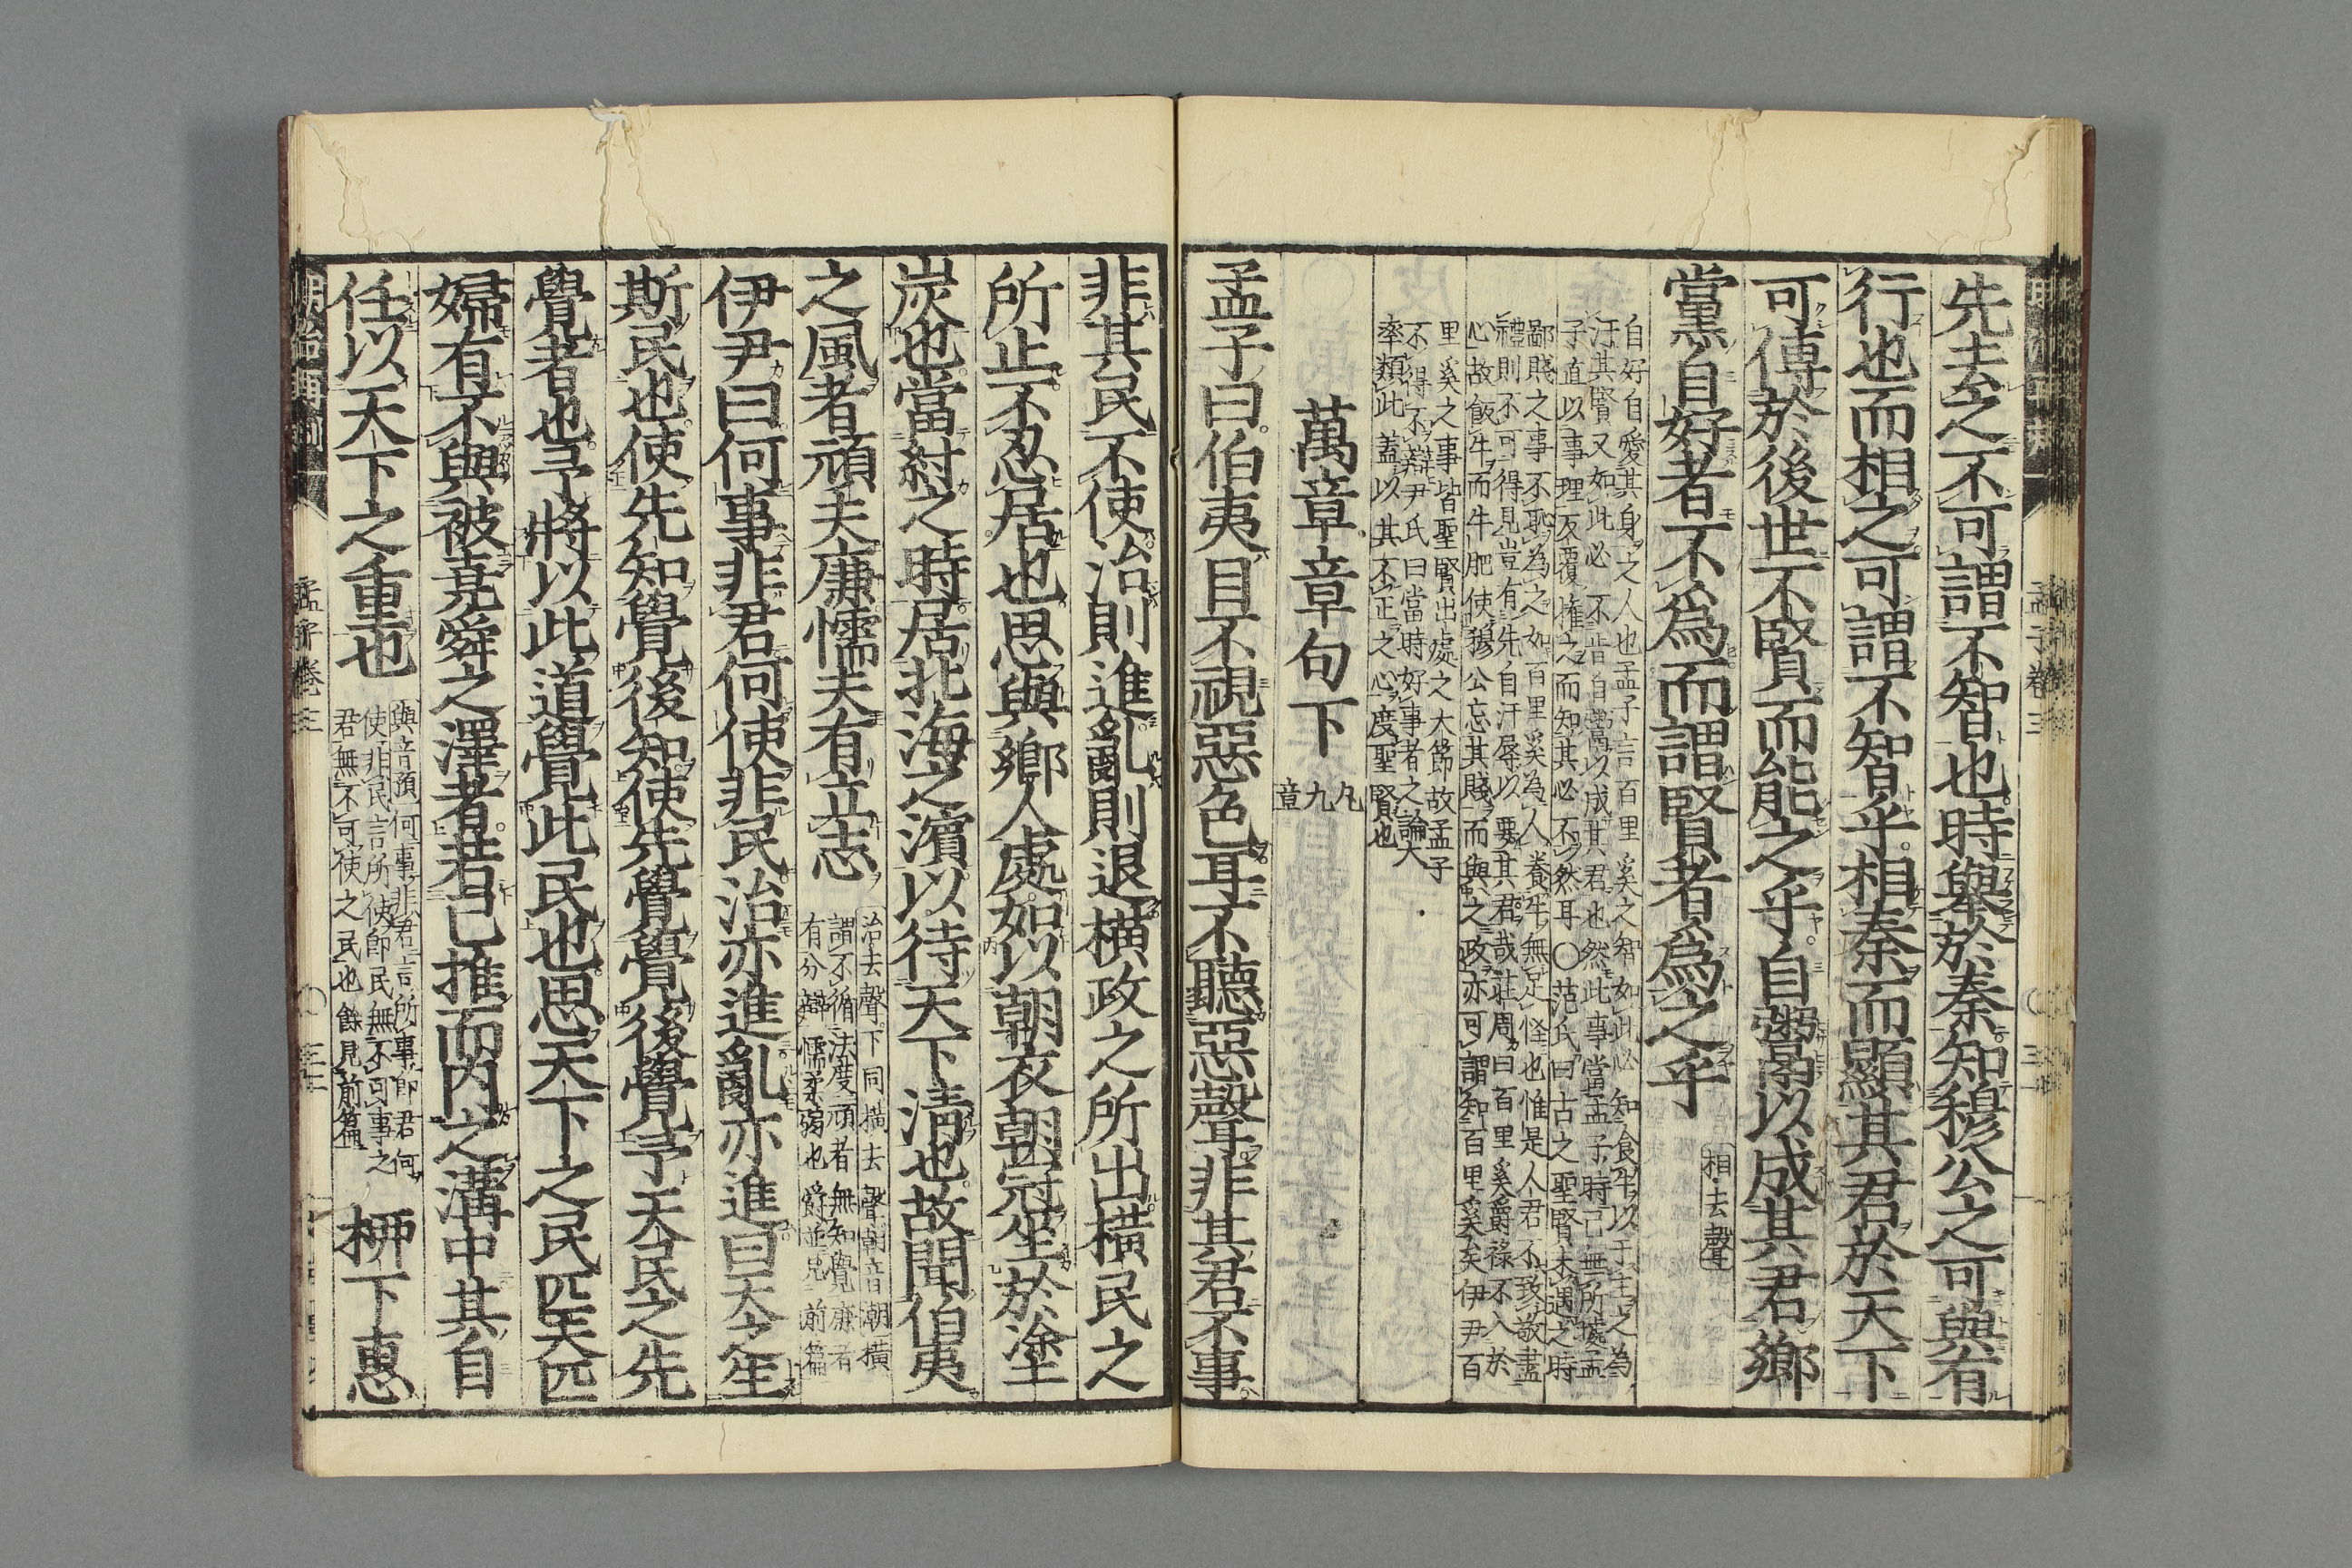 先去之不可謂不智也時擧於秦知穆公之可與有
行也而相之可謂不智乎相秦而顯其君於天下
可傳於後世不賢而能之乎自鬻以成其君鄉
黨自好者不爲而謂賢者爲之乎
相去聲
自好自愛其身之人也孟子言百里奚之智如此必知食牛以干主之為
汙其賢又如此必不肯自鬻以成其君也然此事當孟子時已無所據孟
子直以事理反覆推之而知其必不然耳〇范氏曰古之聖賢未遇之時
鄙賤之事不恥為之如百里奚為人養牛無足怪也惟是人君不致敬盡
禮則不可得見豈有先自汙辱以要其君哉莊周曰百里奚爵祿不入於
心故飯牛而牛肥使穆公忘其賤而與之政亦可謂知百里奚矣伊尹百
里奚之事皆聖賢出處之大節故孟子
不得不辯尹氏曰當時好事者之論大
率類此蓋以其不正之心度聖賢也
萬章章句下
凡九章
孟子曰伯夷目不視惡色耳不聽惡聲非其君不事
非其民不使治則進亂則退橫政之所出橫民之
所止不忍居也思與鄉人處如以朝衣朝冠坐於塗
炭也當紂之時居北海之濱以待天下清也故聞伯夷
之風者頑夫廉懦夫有立志
治去聲下同橫去聲朝音潮橫
謂不循法度頑者無知覺廉者
有分辨懦柔弱也爵並見前篇
伊尹曰何事非君何使非民治亦進亂亦進曰天之生
斯民也使先知覺後知使先覺覺後覺予天民之先
覺者也予將以此道覺此民也思天下之民匹夫匹
婦有不與被堯舜之澤者若己推而內之溝中其自
任以天下之重也
與音預何事非君言所事即君何
使非民言所使即民無不可事之
君無不可使之民也餘見前篇
柳下惠
孟子卷三
孟子卷三